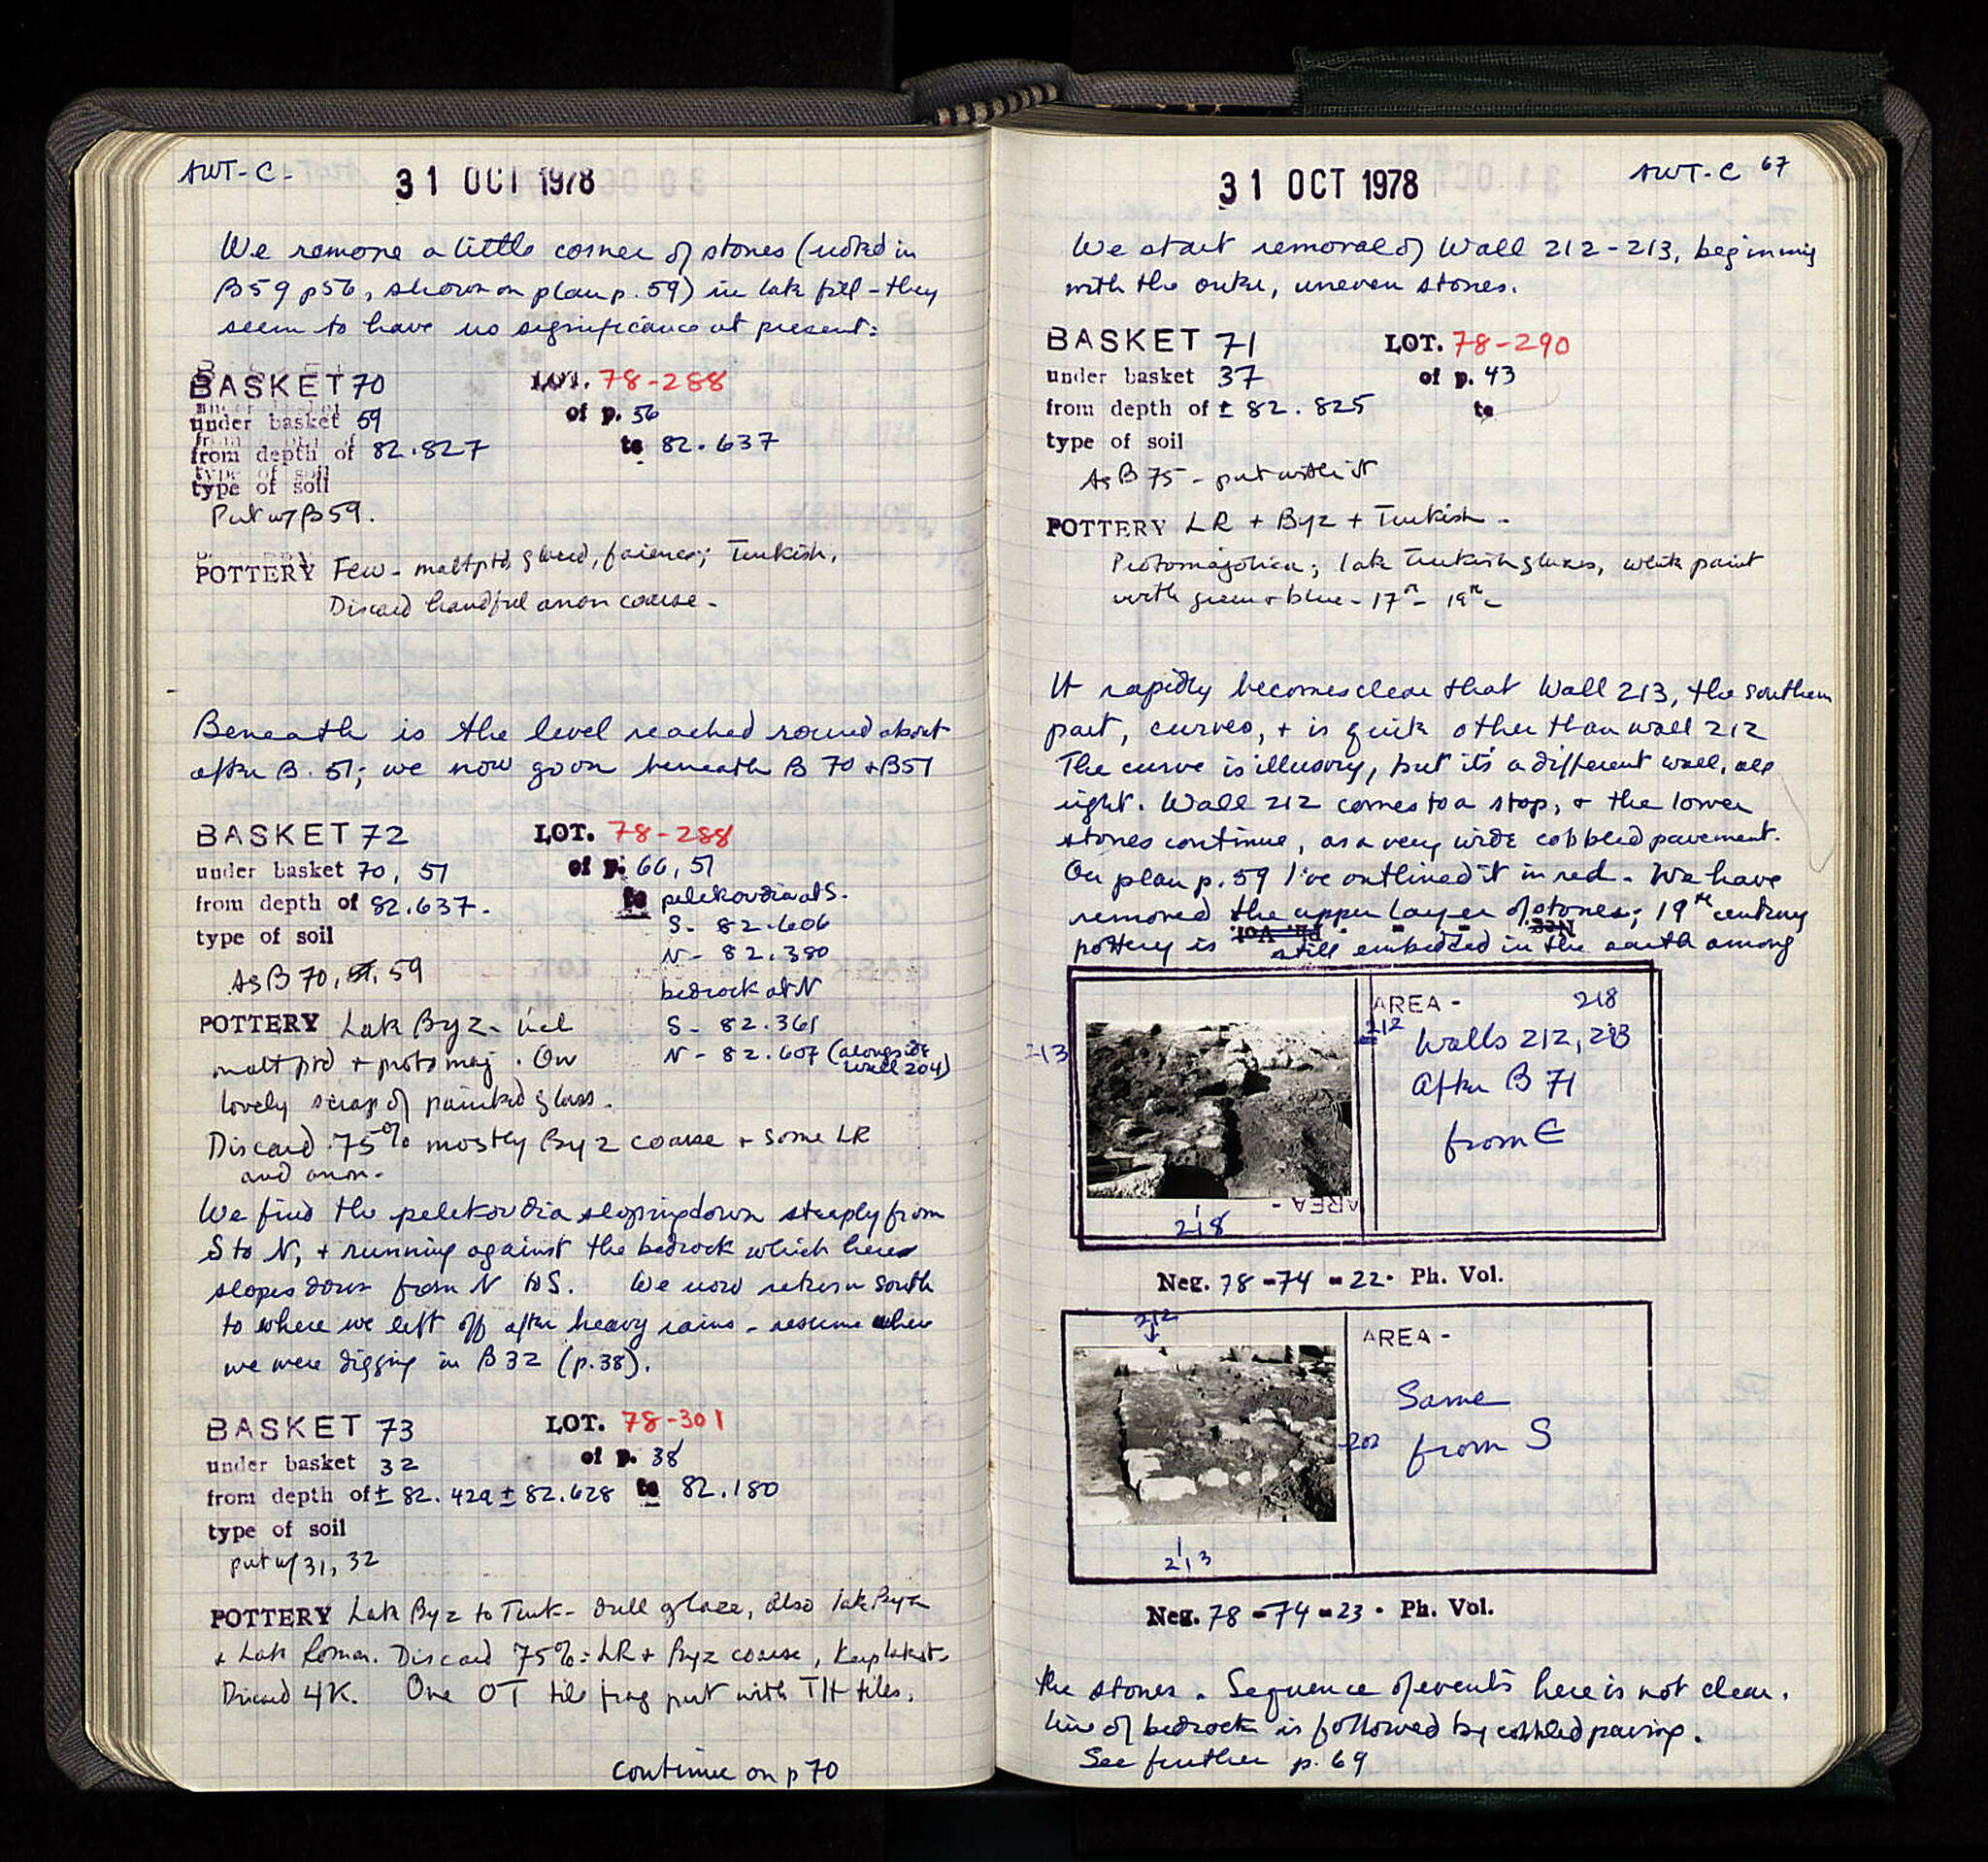 AWT-C-
31 OCT 1978
We remove a little corner of stones (noted in
B59 p56, shown on plan p. 59) in late fill - they
seem to have no significance at present:
BASKET 70 LOT. 78-288
under basket 59 of p. 56
from depth of 82.827 to 82.637
type of soil
Put w/ B59.
POTTERY Few - matt ptd, glazed, faience; Turkish.
Discard handful anon coarse -
Beneath is the level reached round about
after B. 51; we now go on beneath B 70 + B51
BASKET 72 LOT. 78-288
under basket 70, 51 of p. 66, 51
from depth of 82.637. to pelekoudia at S.
S- 82.606
type of soil
N- 82.380
As B 70, 51, 59
bedrock at N
POTTERY Late Byz - incl S- 82.361
matt ptd + protomaj. One N- 82.607 (alongside
wall 204)
lovely scrap of painted glass.
Discard 75% mostly Byz coarse + some LR
and anon.
We find the pelekoudia sloping down steeply from
S to N, + running against the bedrock which here
slopes down from N to S. We now return south
to where we left off after heavy rains - resume where
we were digging in B32 (p.38).
BASKET 73 LOT. 78-301
under basket 32 of p. 38
from depth of ± 82.42 ± 82.628 to 82.180
type of soil
put w/ 31, 32
POTTERY Late Byz to Turk - dull glaze, also late Byz
+ Late Roman. Discard 75% = LR + Byz coarse, Keep latest -
Discard 4K. One OT tile frag put with TH tiles.
Continue on p 70
31 OCT 1978
AWT-C 67
We start removal of Wall 212-213, beginning
with the outer, uneven stones.
BASKET 71 LOT. 78-290
under basket 37 of p. 43
from depth of ± 82.825 to
type of soil
As B 75 - put with it
POTTERY LR + Byz + Turkish -
Protomajolica; late Turkish glazes, white paint
with green + blue - 17th - 19th c
It rapidly becomes clear that Wall 213, the southern
part, curves, + is quite other than wall 212
The curve is illusory, but it's a different wall, all
right. Wall 212 comes to a stop, + the lower
stones continue, as a very wide cobbled pavement.
On plan p. 59 I've outlined it in red. We have
removed the upper layer of stones; 19th century
pottery is still embedded in the earth among
Ph. Vol. Neg.
AREA - 218
213
212
Walls 212, 213
After B 71
from E
AREA -
218
Neg. 78-74-22. Ph. Vol.
212
AREA -
Same
202
from S
213
Neg. 78-74-23. Ph. Vol.
the stones. Sequence of events here is not clear.
line of bedrock is followed by cobbled paving.
See further p. 69